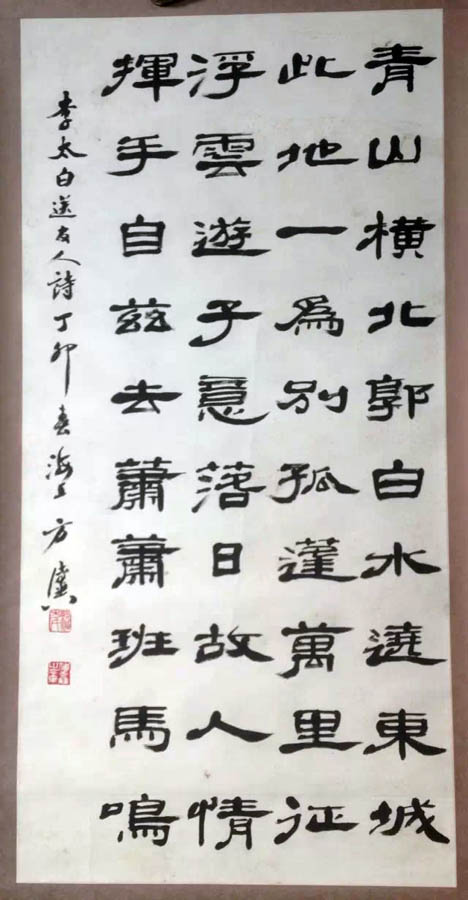 青山橫北郭白水遶東城
此地一為別孤蓬萬里征
浮雲遊子意落日故人情
揮手自茲去蕭蕭班馬鳴
李太白送友人詩丁卯春海上方